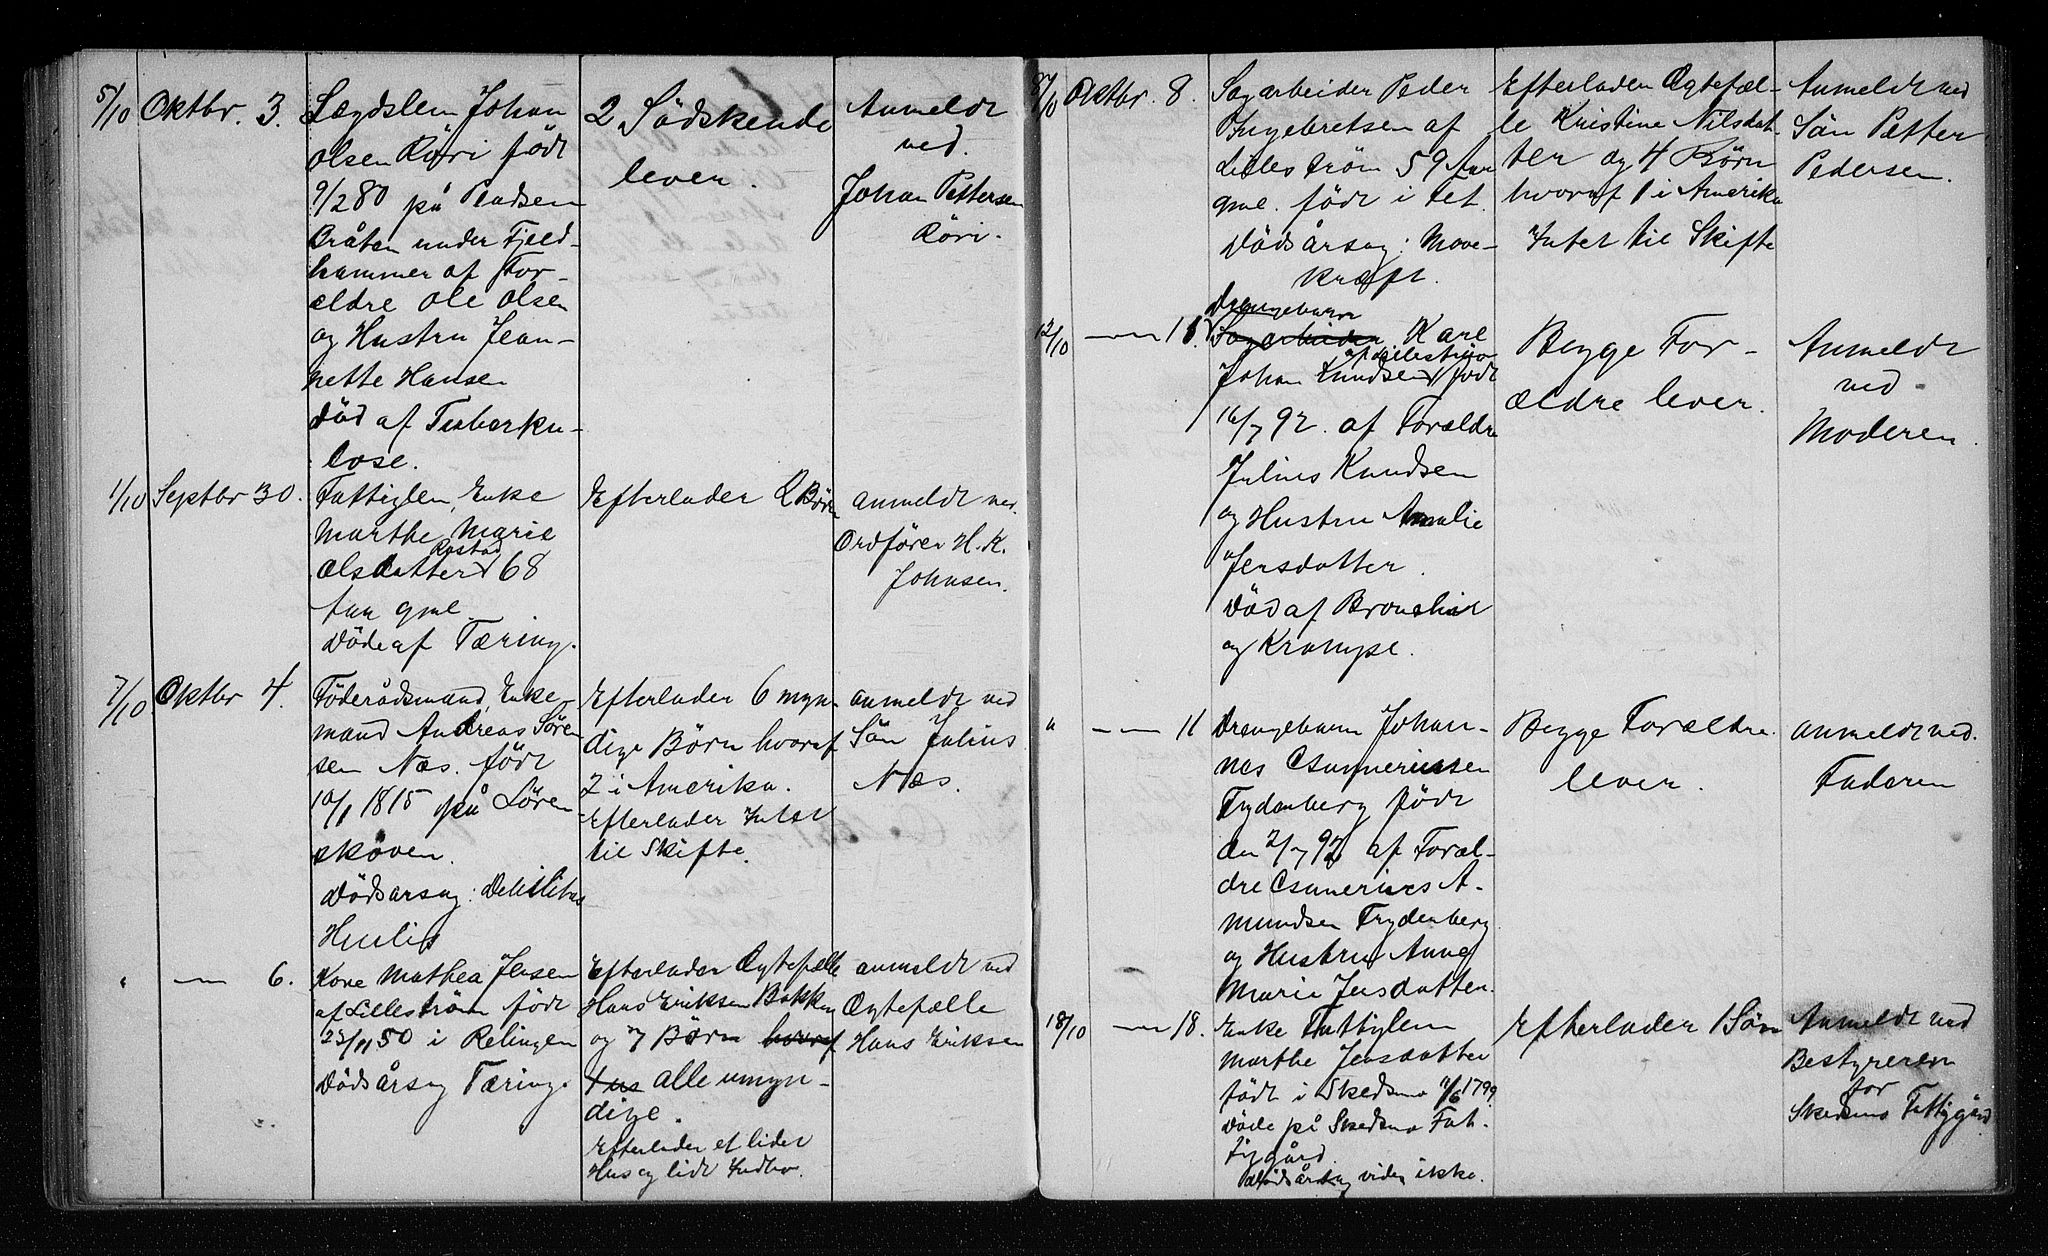 5/10 Oktbr. 3.
Lægdslem Johan
olsen Röri födt
9/2 80 på
Bråten under Fjeld-
hammer af For-
ældre Ole Olsen
og Hustru Jean-
nette Hansen
död af Tuberku-
lose.
2 Södskende
lever.
Anmeldt
ved.
Johan Pettersen
Röri.
1/10 Septbr 30.
Fattiglem, Enke
Marthe Marie
olsdatter 68
gml.
Döde af Tæring.
Efterlader 2 Börn
anmeldt ved.
Ordförer H. K.
Johnsen.
7/10 Oktbr 4.
Föderådsmand, Enke-
mand Andreas Sören
sen Næs. födt
10/1 1815 på Lören-
skoven.
Dödsarsag: Debilitas
Efterlader 6 myn-
dige Börn hvoraf
2 i Amerika.
Efterlader Intet
til Skifte.
anmeldt ved
Sön Julius
Næs.
" — 6.
Kone Mathea Jensen
af Lilleström födt
23/11 50 i Relingen
Dödsårsag Tæring.
Efterlader Ægtefælle
Hans Eriksen Bakken
og 7 Börn hvoraf
alle umyn-
dige.
Efterlader et lidet
Hus og lidt Indbo.
anmeldt ved
Ægtefælle
Hans Eriksen
8/10 Oktbr. 8.
Sagarbeider Peder
Ingebretsen af
Lilleström 59 Aar
gml. födt i Fet.
Dödsårsag: Mave-
kræft.
Efterlader Ægtefæl-
le Kristine Nilsdat-
ter og 4 Börn
hvoraf 1 i Amerika
Intet til Skifte
Anmeldt ved
Sön Petter
Pedersen.
12/10 — 11.
Drengebarn
Sagarbeider Karl
af Lilleström
Johan Knudsen födt
16/7 92. af Forældre
Julius Knudsen
og Hustru Amalie
Jensdatter.
Död af Bronchit
og Krampe.
Begge For-
ældre lever.
Anmeldt
ved
Moderen.
" — 11
Drengebarn Johan-
nes
Frydenberg födt
den 2/7 92 af Foræl-
dre A-
mundsen Frydenberg
og Hustru Anne
Marie Jensdatter.
Begge Forældre.
lever.
anmeldt ved.
Faderen
18/10 — 18.
Enke Fattiglem
Marthe Jensdatter
födt i Skedsmo 1799.
Döde på Skedsmo Fat-
tiggård.
Dödsårsag vides ikke.
Efterlader 1 Sön
Anmeldt ved
Bestyreren
for
Skedsmo Fattiggård